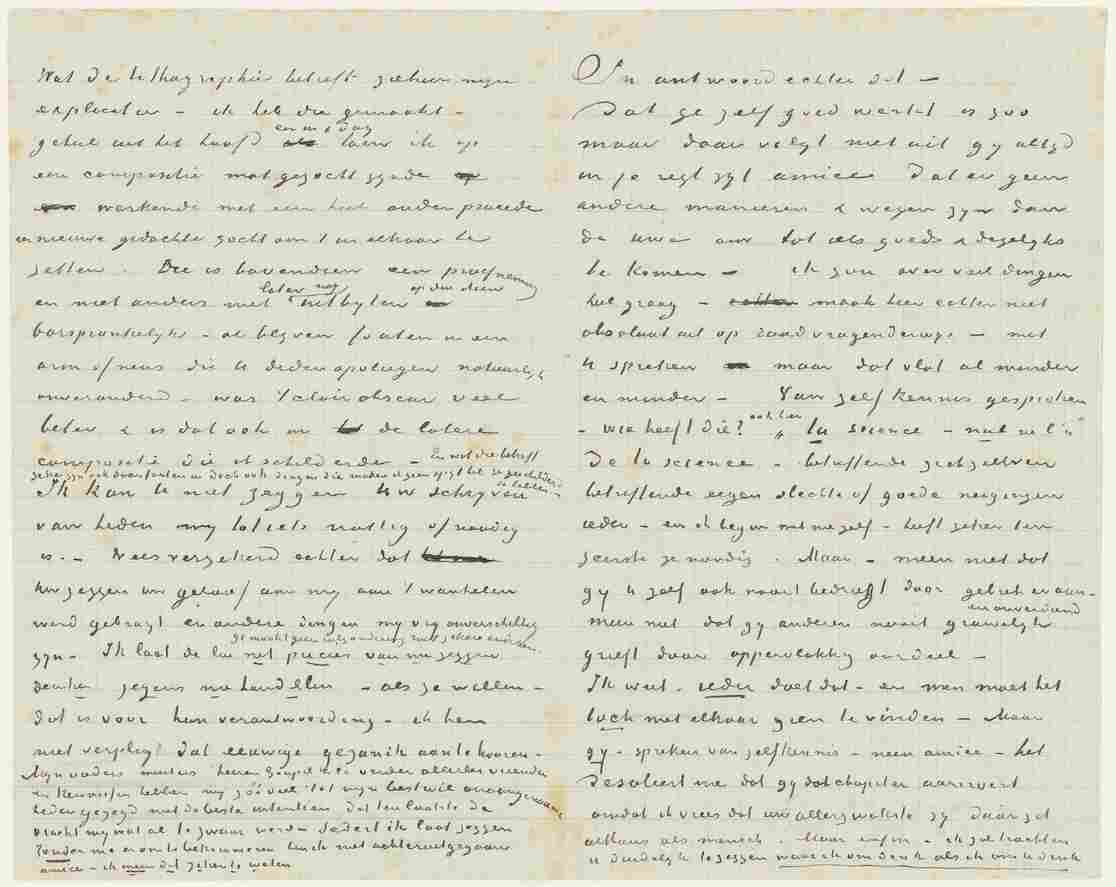 Wat de lithographie betreft ziehier mijn
explicatie – ik heb die gemaakt –
geheel uit het hoofd en in 1 dag toen ik op
eene compositie mat gezocht zijnde
werkende met een heel ander procede
een nieuwe gedachte zocht om 't in elkaar te
zetten. Die is bovendien een proefneming
en niet anders met later nog uitbijten op den steen
oorspronkelijk – er blijven fouten in een
arm of neus die U deden opvliegen natuurlijk
onveranderd – was 't clair obscur veel
beter & is dat ook in de latere
compositie die ik schilderde – En wat die betreft
er zijn ook daar fouten in doch ook dingen die maken ik geen spijt heb ze geschilderd
te hebben
Ik kan U niet zeggen Uw schrijven
van heden mij totniets nuttig of noodig
is. – Wees verzekerd echter dat
Uw zeggen uw geloof aan mij aan 't wankelen
werd gebragt en andere dingen mij vrij onverschillig
zijn – Ik laat de lui net precies van me zeggen
denken jegens me handelen – als ze willen –
dat is voor hun verantwoording – ik ben
niet verpligt dat eeuwige gezanik aan te hooren –
Mijn ouders meesters heeren Goupil & Cie verder allerlei vrienden
en kennissen hebben mij zóó veel tot mijn bestwil onaangenaams
heden gezegd met de beste intentien dat ten laatste de
vracht mij wat al te zwaar werd Sedert ik laat zeggen
zonder me er om te bekommeren ben ik niet achteruitgegaan
amice – ik meen dit zeker te weten
In antwoord echter dit –
Dat ge zelf goed werkt is zoo
maar daar volgt niet uit gij altijd
in je regt zijt amice Dat er geen
andere manieren & wegen zijn dan
de uwe om tot iets goeds & degelijks
te komen – ik zou over veel dingen
heel graag – maak hier echter niet
absoluut uit op raadvragenderwijs – met
U spreken maar dat vlot al minder
en minder – Van zelfkennis gesproken
– wie heeft die? ook hier „la science – nul ne l'a"
De la science – betreffende zichzelven
betreffende eigen slechte of goede neigingen
ieder – en ik begin met mezelf – heeft zeker ten
zeerste ze noodig. Maar – meen niet dat
gij U zelf ook nooit bedriegt door gebrek er aan –
meen niet dat gij anderen nooit gruwelijk en onverdiend
grieft door oppervlakkig oordeel –
Ik weet – ieder doet dat – en men moet het
toch met elkaar zien te vinden – Maar
gij – spreken van zelfkennis – neen amice – het
desoleert me dat gij dat chapiter aanroert
omdat ik vrees dat uw allerzwakste zij daar zit
althans als mensch. Maar enfin – ik zal trachten
U duidelijk te zeggen waar ik om denk als ik om U denk